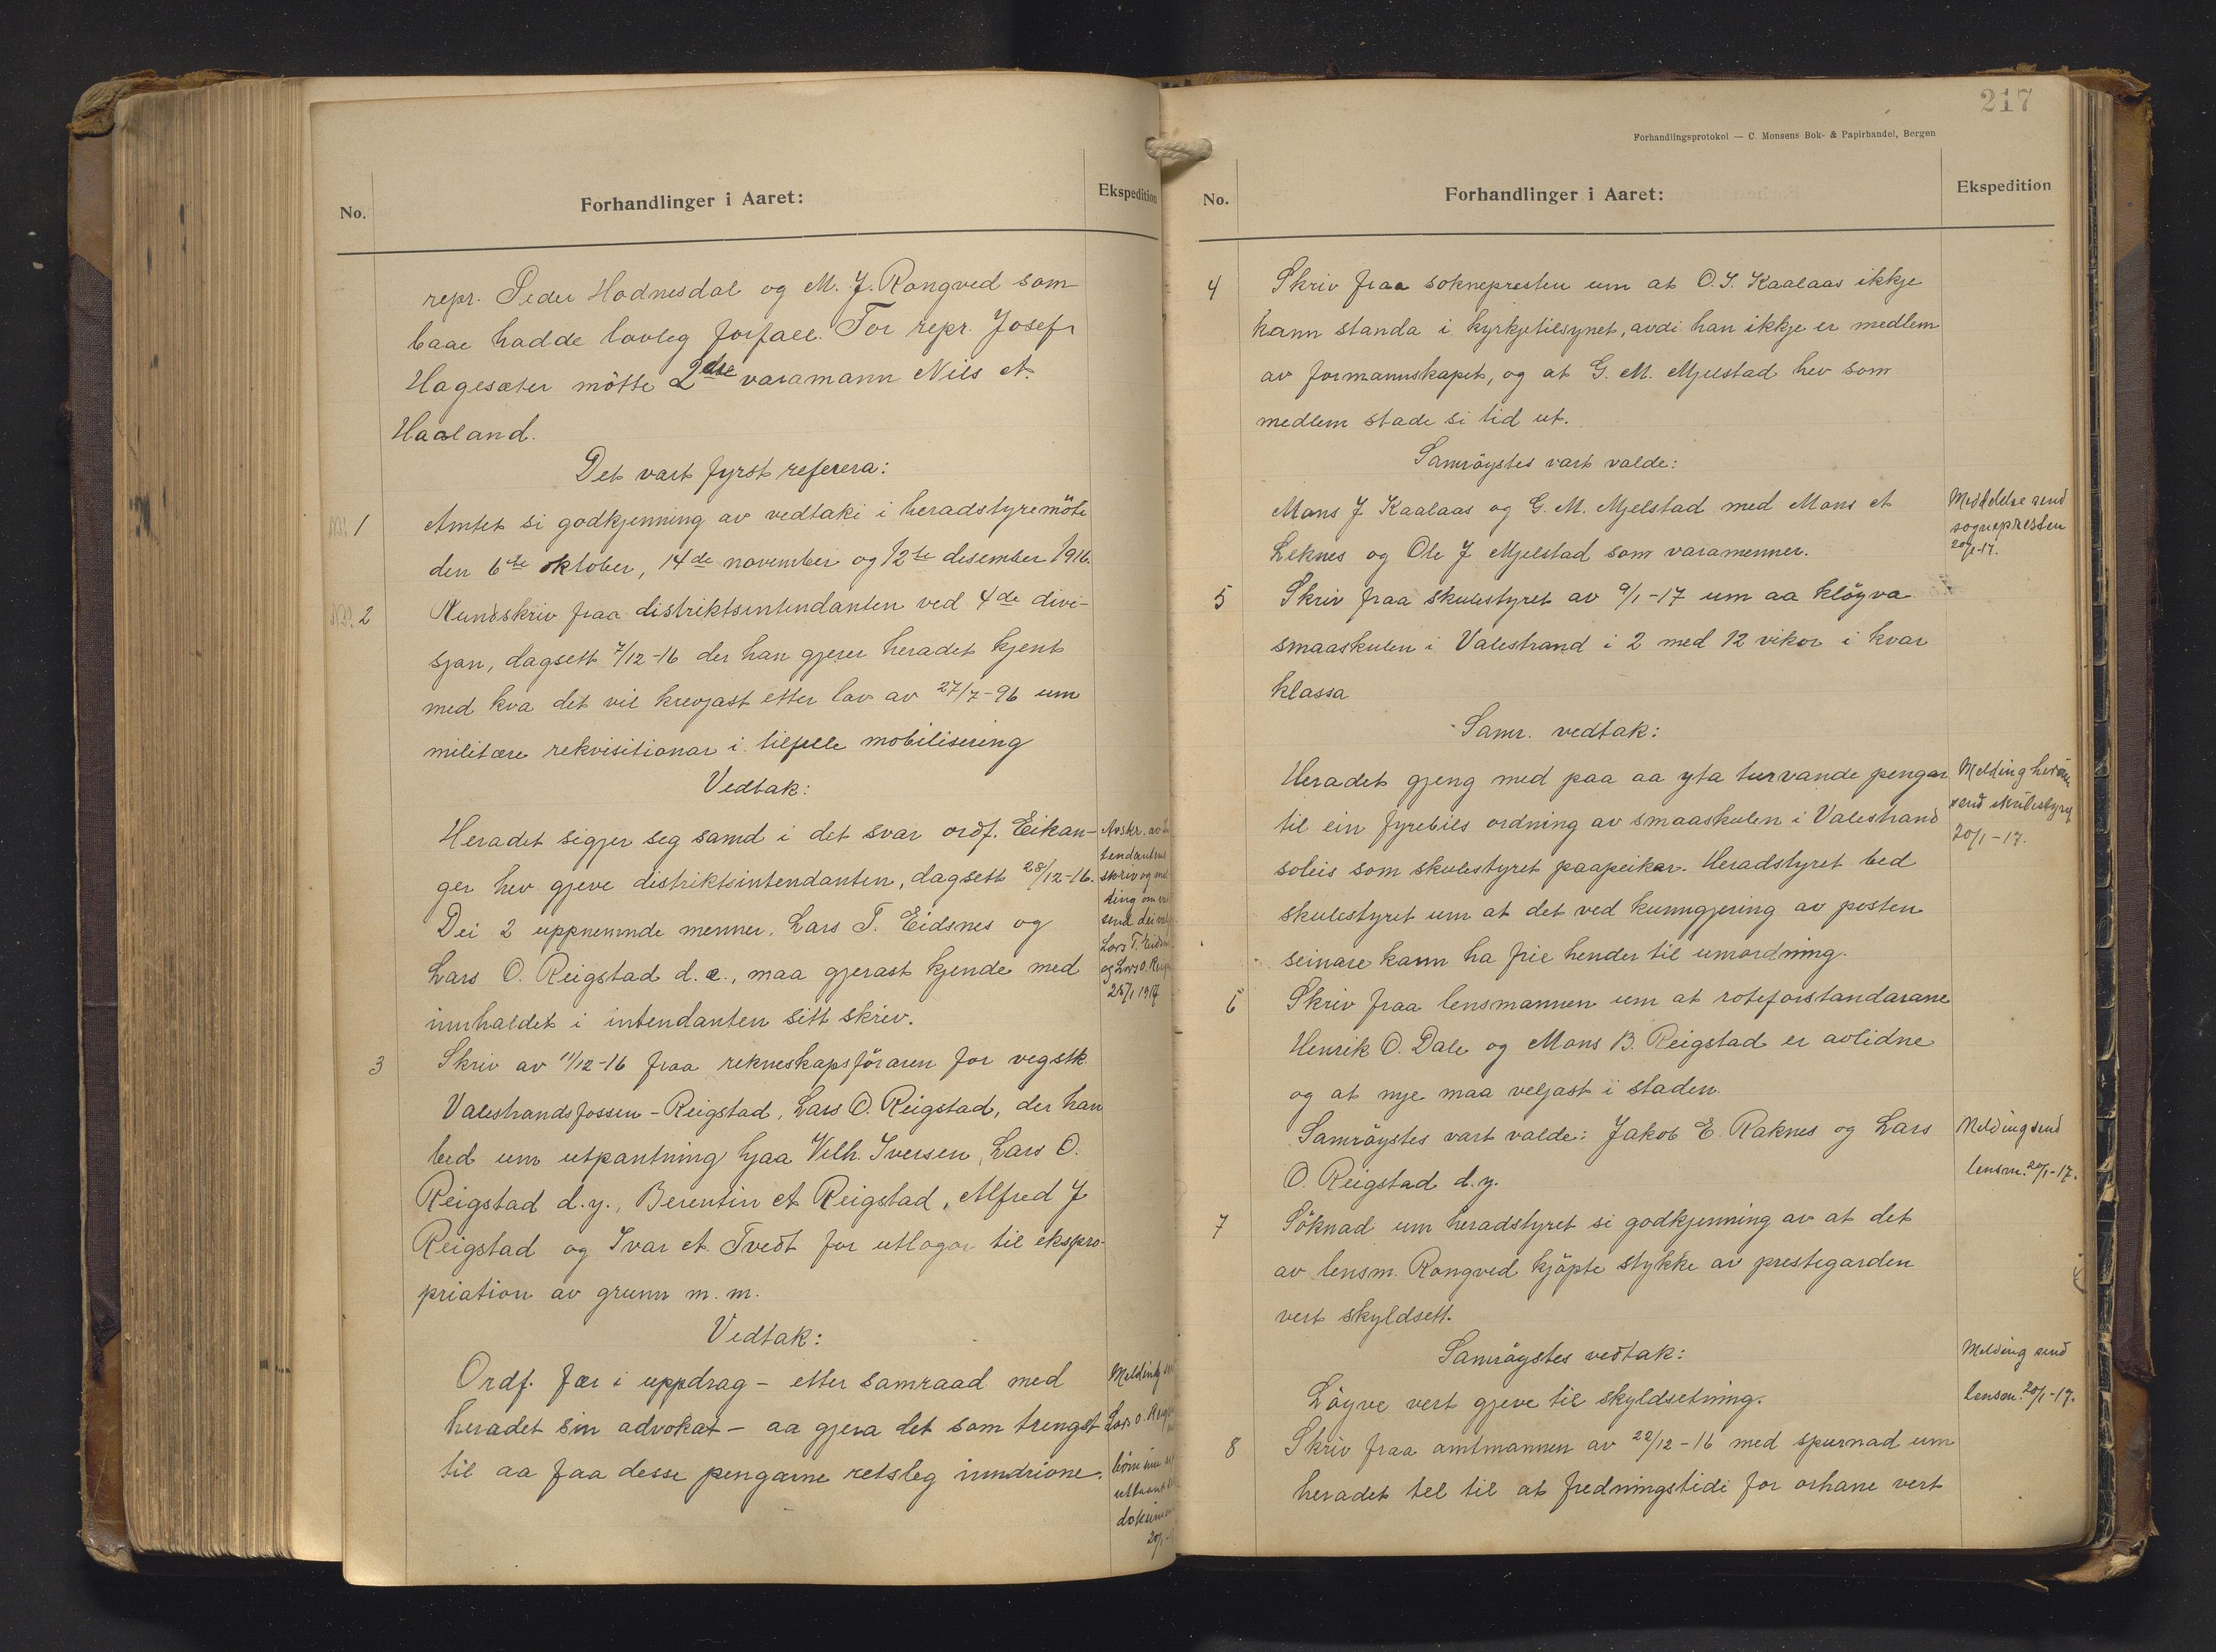 No.
Forhandlinger i Aaret:
Ekspedition
repr. Peder Hodnesdal og M. J. Rongved som
baae hadde lovleg forfall. For repr. Josef
Hagesæter mötte 2dre varamann Nils A.
Haaland.
Det vart fyrst referera:
No. 1
Amtet si godkjenning av vedtaki i heradstyremöte
den 6te oktober, 14de november og 12te desember 1916.
No. 2
Rundskriv fraa distriktsintendanten ved 4de divi-
sjon, dagsett 7/12-16 der han gjerer heradet kjent
med kva det vil krevjast etter lov av 27/7-96 um
militære rekvisitionar i tilfelle mobilisering
Vedtak:
Heradet sigjer seg samd i det svar ordf. Eikan-
ger hev gjeve distriktsintendanten, dagsett 28/12-16.
Dei 2 uppnemnde menner, Lars T. Eidsnes og
Lars O. Reigstad d. e., maa gjerast kjende med
innhaldet i intendanten sitt skriv.
Avskr. av
tendantens
skriv og mel
ding om
send dei
Lars T. Eidsn
og Lars O. Reig
25/1 1917
3
Skriv av 11/12-16 fraa rekneskapsföraren for vegstk.
Valestrandsfossen - Reigstad, Lars O. Reigstad, der han
bed um utpantning hjaa Vilh. Iversen, Lars O.
Reigstad d. y., Berentin A Reigstad, Alfred J
Reigstad og Ivar A. Tvedt for utlogor til ekspro-
priation av grunn m. m.
Vedtak:
Ordf. fær i uppdrag - etter samraad med
heradet sin advokat - aa gjera det som trengst
til aa faa desse pengarne retsleg inndrivne.
Melding
Lars O. Reig
20/1
217
Forhandlingsprotokol — C. Monsens Bok- & Papirhandel, Bergen
No.
Forhandlinger i Aaret:
Ekspedition
4
Skriv fraa soknepresten um at O. J. Kaalaas ikkje
kann standa i kyrkjetilsynet, avdi han ikkje er medlem
av formannskapet, og at G. M. Mjelstad hev som
medlem stade si tid ut.
Samröystes vart valde:
Mons J Kaalaas og G. M. Mjelstad med Mons A
Leknes og Ole J Mjelstad som varamenner.
Meddelelse send
sognepresten
20/1-17.
5
Skriv fraa skulestyret av 9/1-17 um aa klöyva
smaaskulen i Valestrand i 2 med 12 vikor i kvar
klassa
Samr. vedtak:
Heradet gjeng med paa aa yta turvande pengar
til ein fyrebils ordning av smaaskulen i Valestrand
soleis som skulestyret paapeikar. Heradstyret bed
skulestyret um at det ved kunngjering av posten
seinare kann ha frie hender til umordning.
Melding herum
send skulestyret
20/1-17.
6
Skriv fraa lensmannen um at roteforstandarane
Henrik O. Dale og Mons B. Reigstad er avlidne
og at nye maa veljast i staden.
Samröystes vart valde: Jakob E. Raknes og Lars
O. Reigstad d. y.
Melding send
lensm. 20/1-17.
7
Söknad um heradstyret si godkjenning av at det
av lensm. Rongved kjöpte stykke av prestegarden
vert skyldsett.
Samröystes vedtak:
Löyve vert gjeve til skyldsetning.
Melding send
lensm. 20/1-17.
8
Skriv fraa amtmannen av 22/12-16 med spurnad um
heradet tel til at fredningstidi for orhane vert